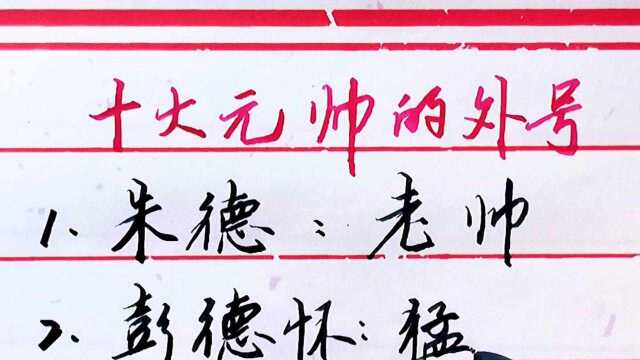 十大元帅的外号
1. 朱德：老帅
2. 彭德怀：猛